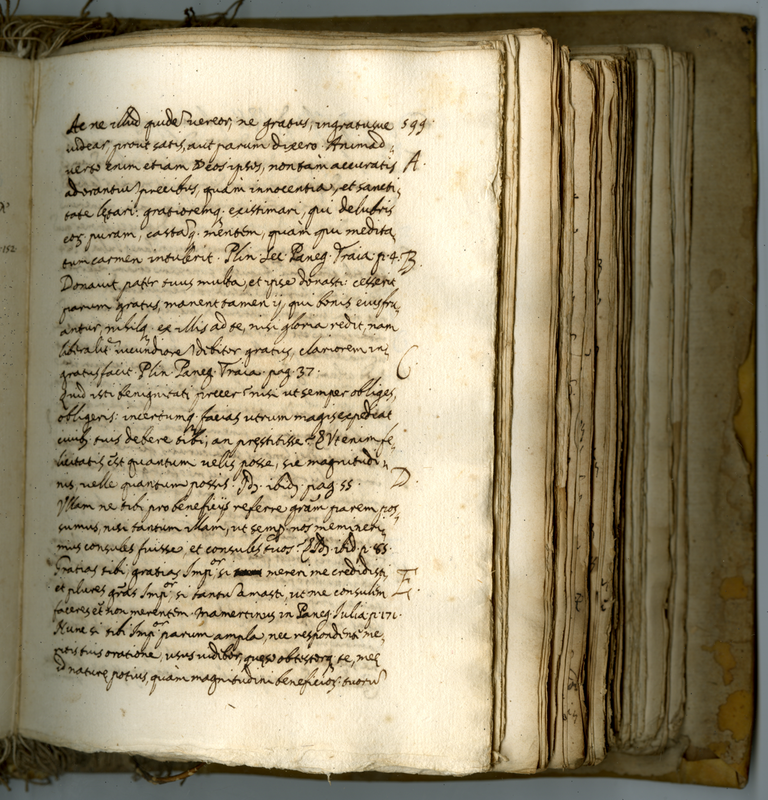 Ac ne illud quidē vereor, ne gratus, ingratusue 599
videar, prout satis, aut parum dixero. Animad,
verto enim etiam Deos ipsos, non tam accuratis A.
adorantiū precibus, quàm innocentia, et sancti,
tate lętari: gratioremq. existimari, qui delubris
eoꝝ puram, castaq. mentem, quàm qui medita,
tum carmen intulerit. Plin. Sec. Paneg. Traia. p. 4. B.
Donauit pater tuus multa, et ipse donasti: cesserit
parum gratus, manent tamen ij, qui bonis eius fru,
antur, nihilq. ex illis ad te, nisi gloria redit, nam
liberalit. iucundiorē debitor gratus, clariorem in,
gratus facit. Plin. Paneg. Traia. pag. 37. C
Quid isti benignitati precer nisi ut semper obliges,
obligeris: incertumq. facias utrum magis expediat
ciuib. tuis debere tibi, an prestitisse? Vt enim fe,
licitatis est quantum velis posse, sic magnitudi,
nis, velle quantum possis. Id. ibid. pag. 55. D.
Nam ne tibi pro beneficijs referre grām parem pos,
sumus, nisi tantum illam, ut semp. nos memineri,
mus consules fuisse, et consules tuos. Id. ibid. p. 83.
Gratias tibi, gratias Impor. si mereri me credidisti E.
et plures grās Impor. si tantū amasti, ut me consulem
faceres et non merentem. Mamertinus in Paneg. Julia. p. 171.
Nunc si tibi Impor. parum ampla, nec respondens me,
ritis tuis oratione, usus videbor, quęso obtestorq. te, meę
id naturę potius, quàm magnitudini beneficioꝝ tuorū
152